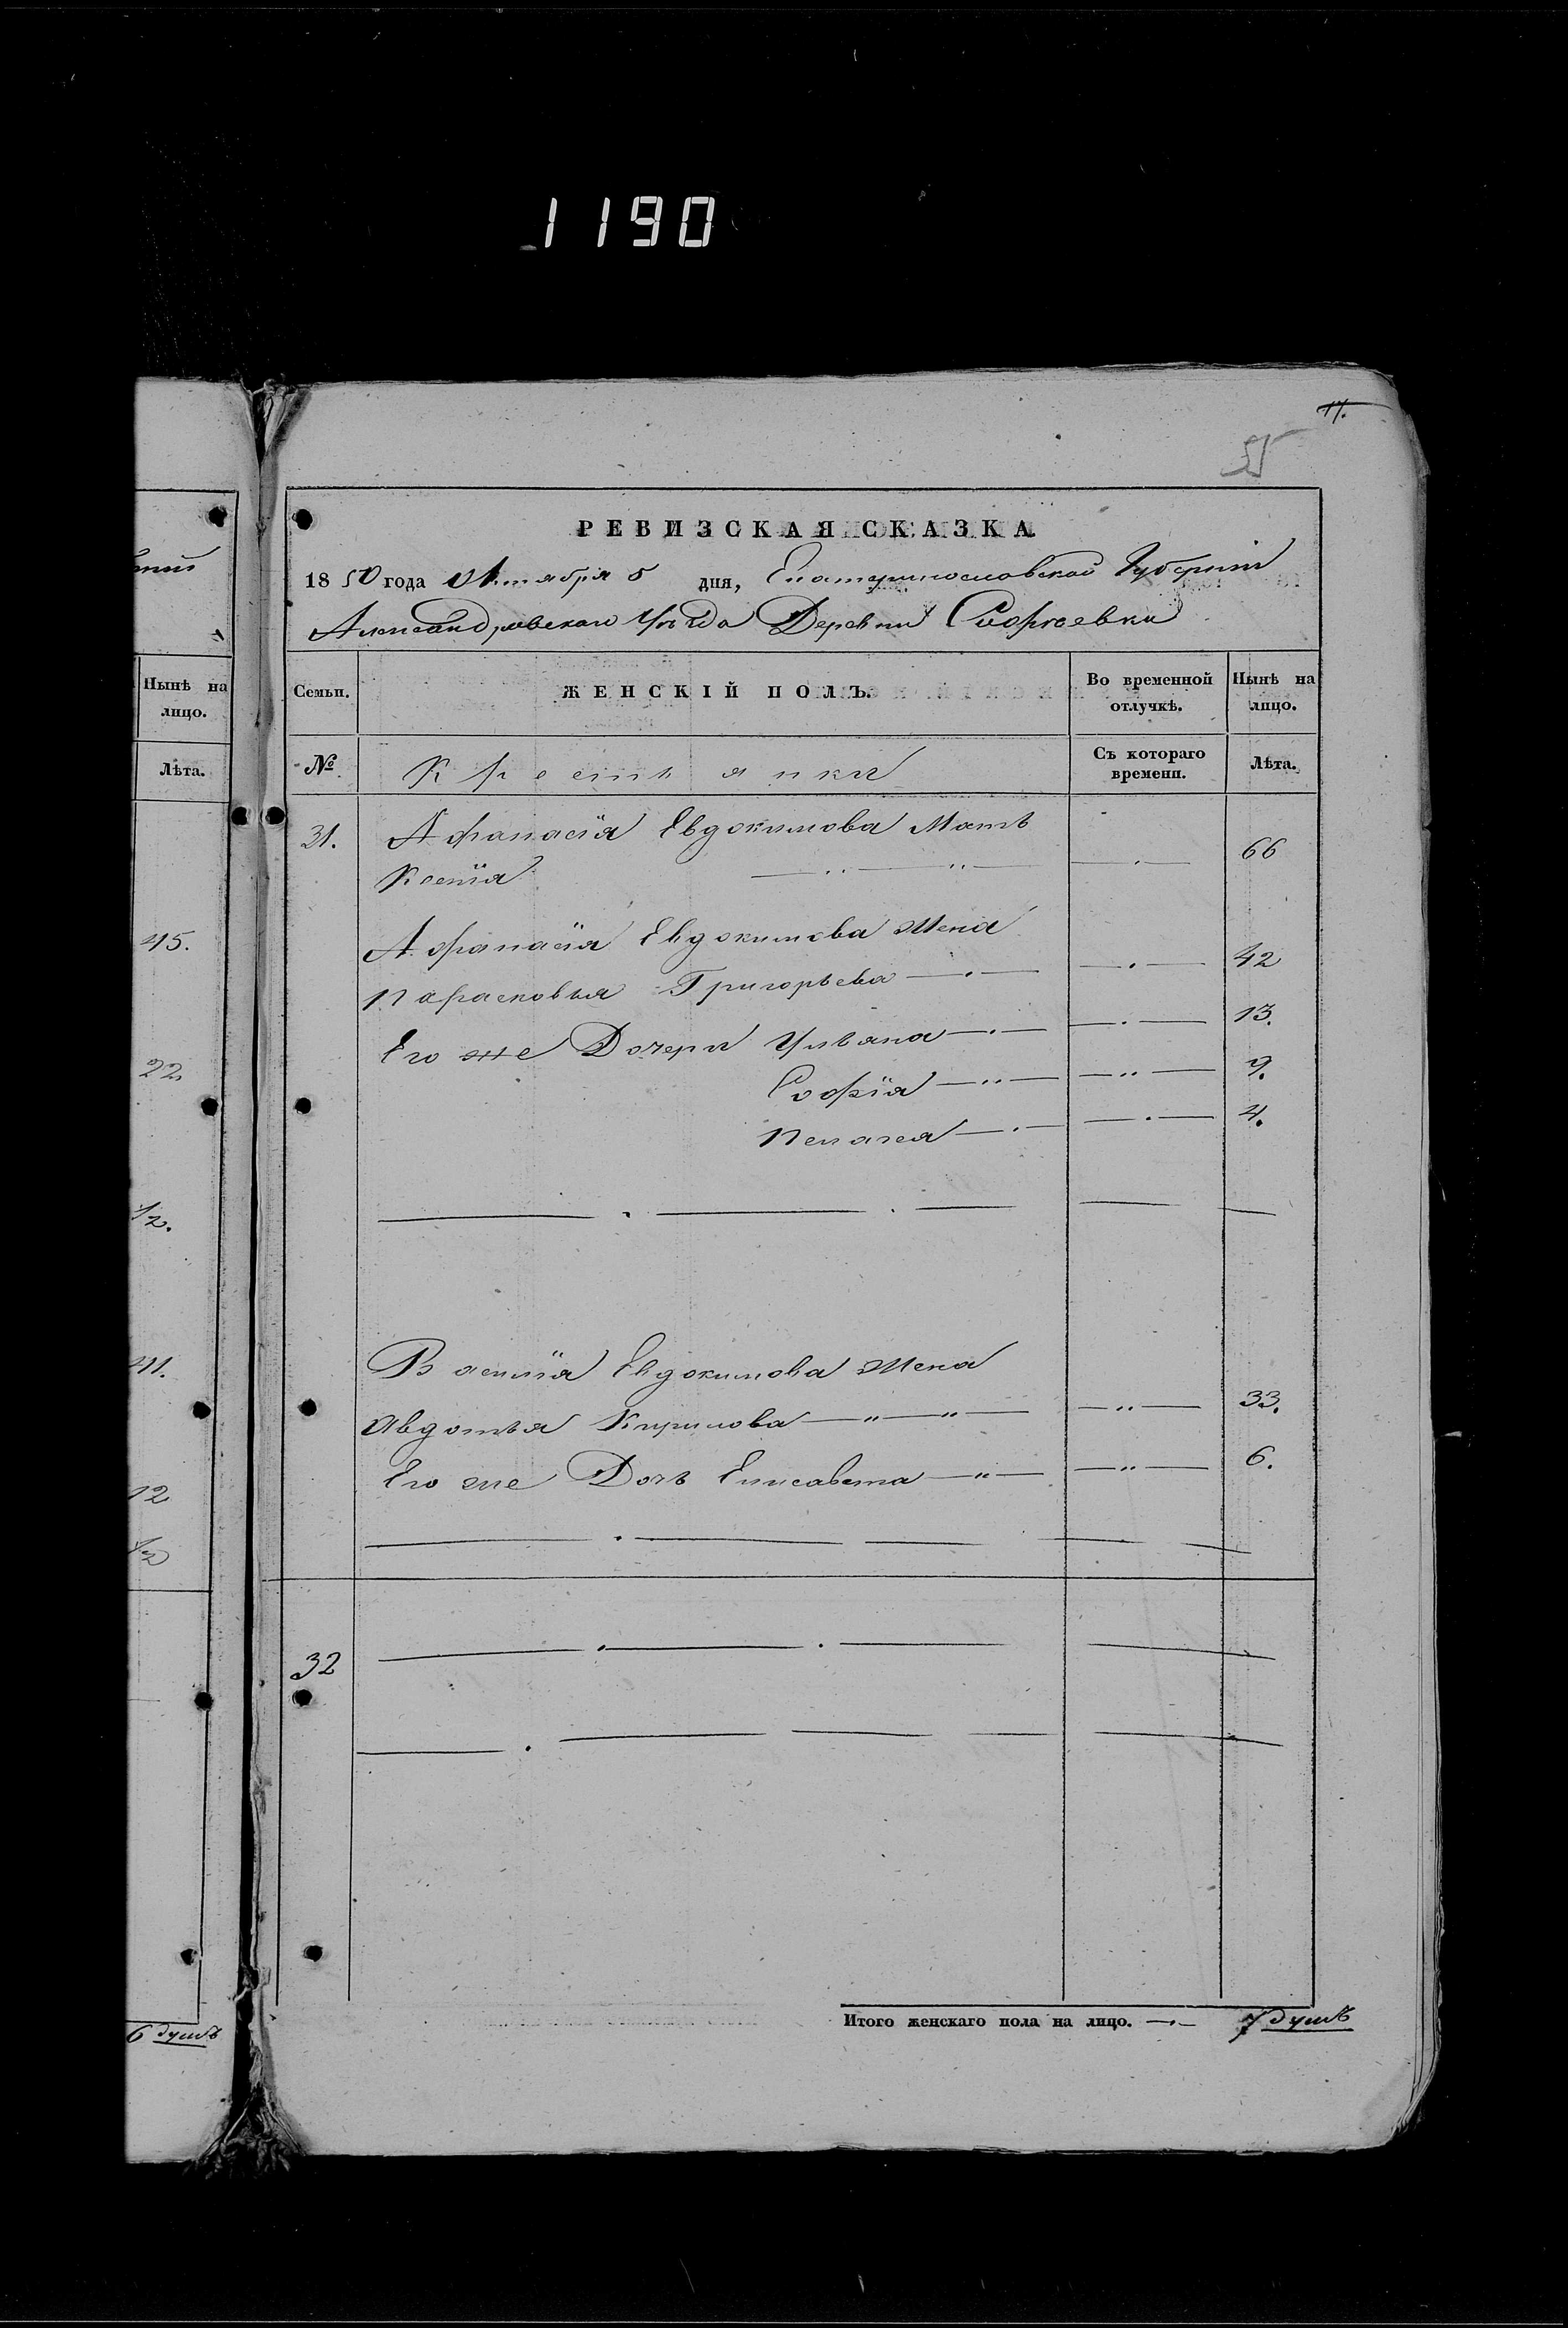 1190
17.
55
РЕВИЗСКАЯ СКАЗКА
1850 года Октября 5 дня, Екатеринославской Губернiи
Александровскаго Уѣзда Деревни
Семьи. ЖЕНСКІЙ ПОЛЪ. Во временной отлучкѣ. Нынѣ на лицо.
№ Крестьянки Съ котораго времени. Лѣта.
31. Афанасiя Евдокимова Мать
Ксенiя 66
Афанасiя Евдокимова Жена
Парасковья Григорьева 42
Его же Дочери Ульяна 13.
Софiя 9.
Пелагея 4.
Василiя Евдокимова Жена
Авдотья Кирилова 33.
Его же Дочь Елисавета 6.
32
Итого женскаго пола на лицо. 7 душъ
Нынѣ на
лицо.
Лѣта.
45.
22
1/2.
41.
12
1/2
6 душъ